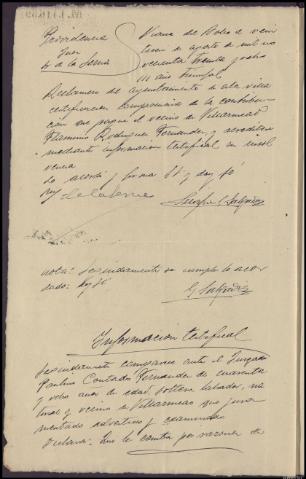 Providencia
Juez
Sr de la Serna
Viana del Bollo a vein
tiseis de agosto de mil no
vecientos treinta y ocho
III año triunfal
Reclamese del ayuntamiento de esta villa
certificacion comprensiva de la contribu
cion que pague el vecino de Villarmeao
Filomeno Rodriguez Fernandez, y acreditese
mediante informacion testifical su insol
vencia
Lo acordó y firma Sª Sª doy fé
nota: Seguidamente se cumple lo acor
dado: doy fé
Informacion testifical
Seguidamente comparece ante el Juzgado
Paulino Contado Fernandez de cuarenta
y ocho años de edad, soltero labrador, na
tural y vecino de Villarmeao que jura
mentado advertido y examinado
Declara: Que le consta por razones de